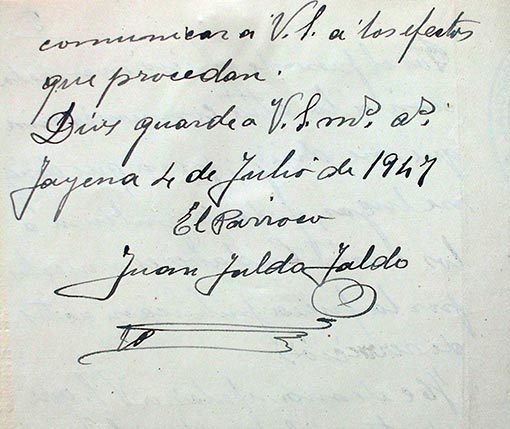 comunicar a V. S. a los efectos
que procedan.
Dios guarde a V. S. mº. aº.
Jayena 4 de Julio de 1947
El Párroco
Juan Jalda Jaldo